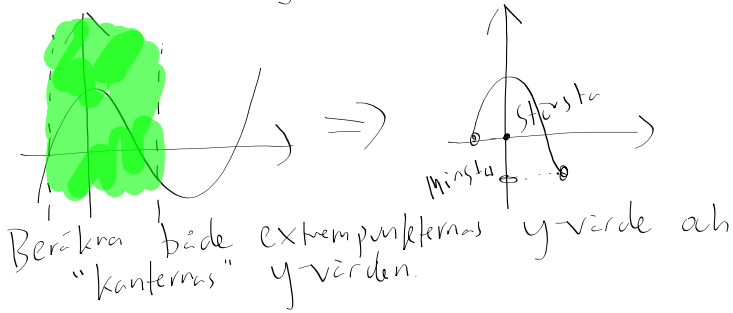 Största
Minsta
Beräkna både extrempunkternas y-värde och
"kanternas" y-värden.